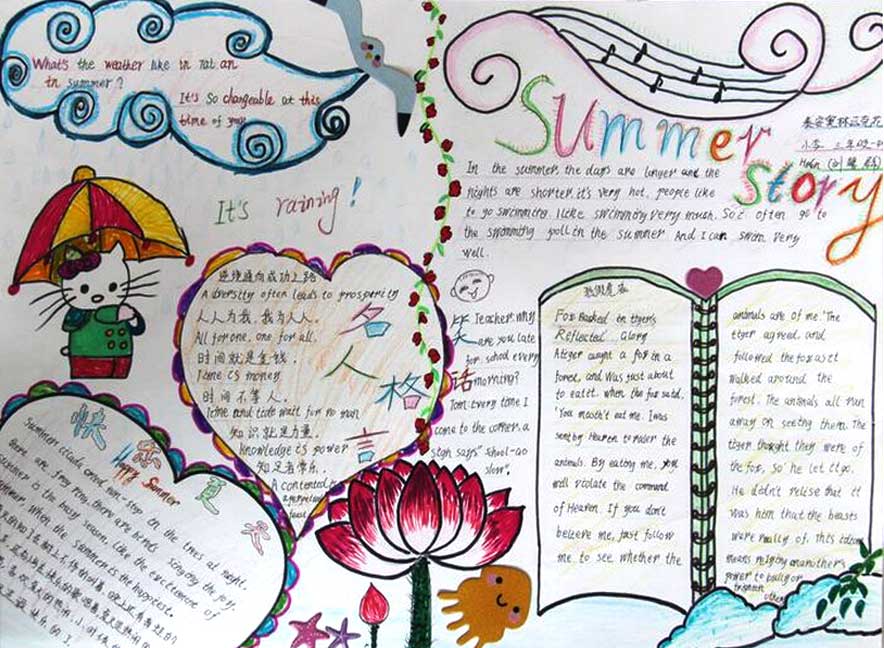 What's the weather like in Tai an
in summer?
It's So changeable at this
time of year
It's raining!
Summer
story
In the summer, the days are longer and the
nights are shorter. it's very hot. people like
to go swimming. I like swimming very much. So I often go to
the swimming pool in the summer And I can swim very
well.
逆境通向成功之路
Adversity often leads to prosperity
人人为我,我为人人.
All for one, one for all.
时间就是金钱.
Time is money
时间不等人.
Time and tide wait for no man
知识就是力量.
knowledge is power
知足者常乐.
A contented
feast
名
人
格
言
笑话
Teacher: why
are you late
for school every
morning?
Tom: every time I
come to the corner, a
sign says" Shool-Go
slow".
快乐夏天
Happy Summer
Summer, cicada cried non-stop on the trees at night,
there are frog ring, there are birds singing the joy.
Summer is the busy season, like the excitement of
summer. When the summer is the happiest.
狐假虎威
Fox Basked in tiger's
Reflected Glory
A tiger caught a fox in a
forest, and Was just about
to eat it, when the fox said,
"You mustn't eat me. I was
sent by Heaven to rule the
animals. By eating me, you
will violate the command
of Heaven. If you don't
believe me, just follow
me to see whether the
animals are of me." The
tiger agreed, and
followed the fox as it
walked around the
forest. The animals all ran
away on seeing them. The
tiger thought they were of
the fox, so he let it go.
He didn't relise that it
was him that the beasts
were really of. This idiom
means relying on another's
power to bully or
frighten
others